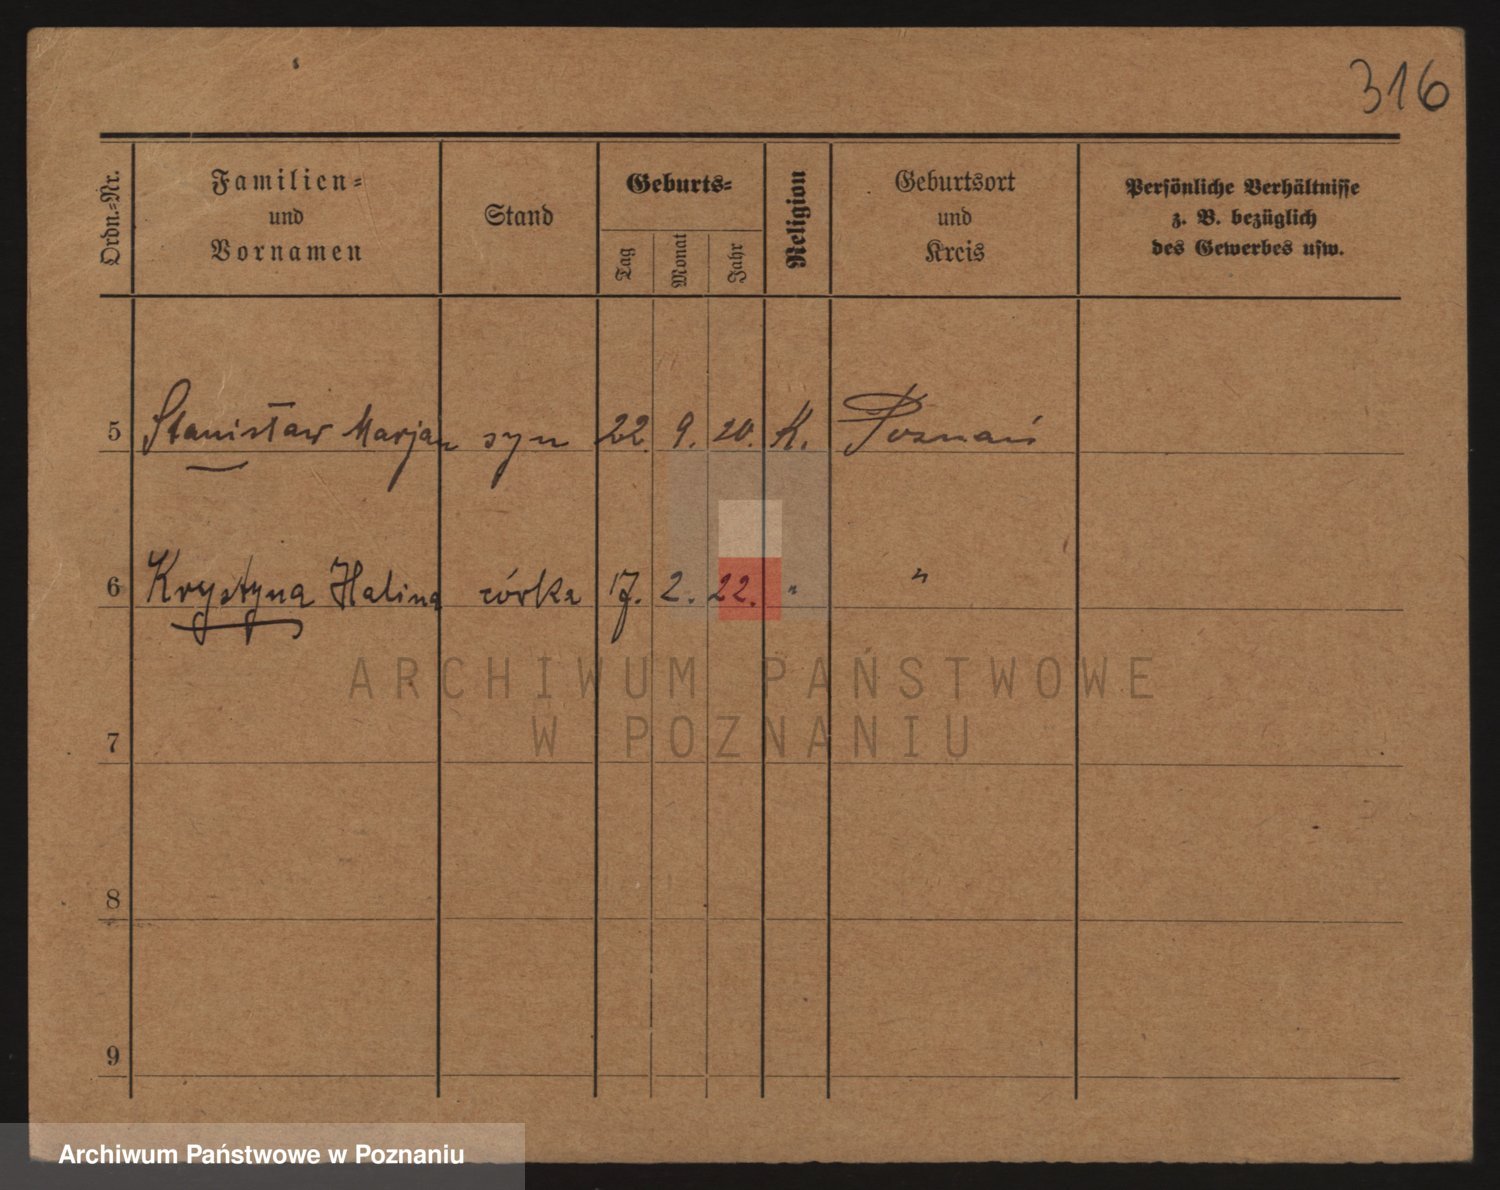 316
Ordn.-Nr.
Familien-
und
Vornamen
Stand
Geburts-
Tag
Monat
Jahr
Religion
Geburtsort
und
Kreis
Persönliche Verhältnisse
z. B. bezüglich
des Gewerbes usw.
5 Stanisław Marjan syn 22. 9. 20. K. Poznań
6 Krystyna Halina córka 17. 2. 22. " "
ARCHIWUM PAŃSTWOWE
W POZNANIU
7
8
9
Archiwum Państwowe w Poznaniu